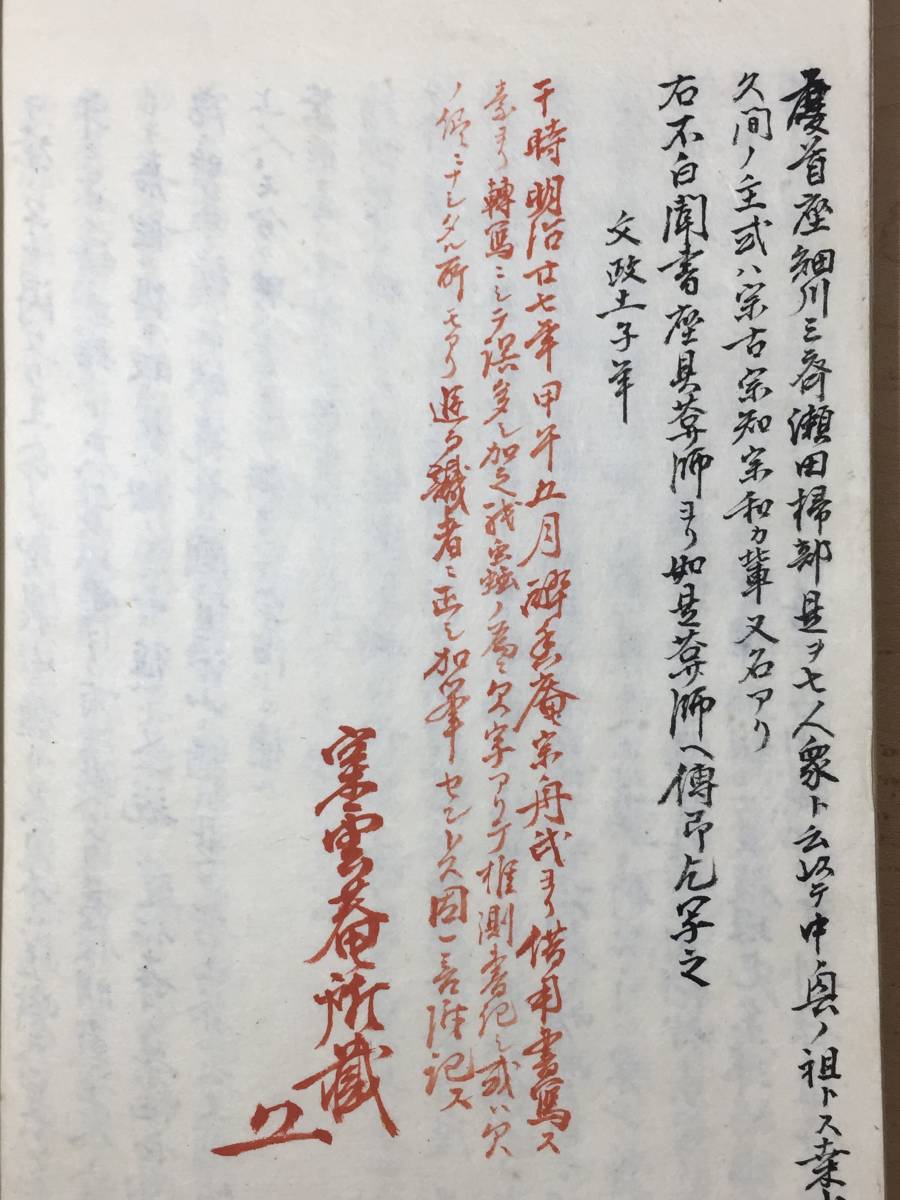 慶首座細川三斎瀬田掃部是ヲ七人衆ト云以テ中興ノ祖トス桑山
久間ノ主式ハ宗古宗知宗和カ輩又名アリ
右不白聞書座具菴師ヨリ如是菴師ヘ傳即乞写之
文政土子年
干時明治廿七年甲午五月酔香庵宗舟氏ヨリ借用書寫ス
轉寫ニシテ誤多シ加之残蠧ノ為ニ欠字アリテ推測書記シ或ハ欠
ノ侭ニナシタル所モアリ追而識者ニ正シ加筆セントス因一言附記ス
寒雲菴所蔵